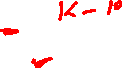 K - 10